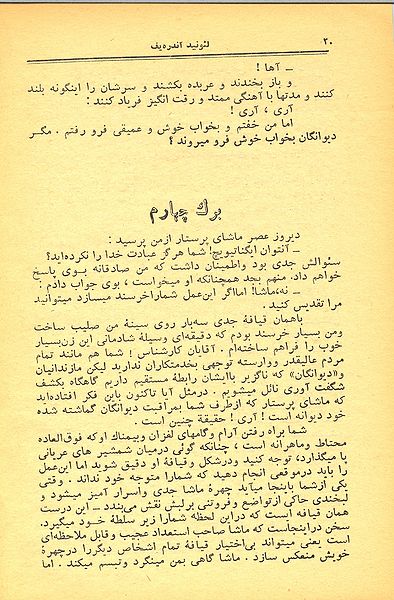 ۲۰
لئونید آندره‌یف
ــ آها !
و باز بخندند و عربده بکشند و سرشان را اینگونه بلند
کنند و مدتها با آهنگی ممتد و رقت انگیز فریاد کنند :
آری ، آری !
اما من خفتم و بخواب خوش و عمیقی فرو رفتم . مگر
دیوانگان بخواب خوش فرو میروند ؟
برك چهارم
دیروز عصر ماشای پرستار ازمن پرسید :
ــ آنتوان ایگناتیویچ! شما هرگز عبادت خدا را نکرده‌اید؟
سئوالش جدی بود واطمینان داشت که من صادقانه بوی پاسخ
خواهم داد. منهم بجد همچنانکه او میخواست ، بوی جواب دادم :
ــ نه،ماشا! امااگر این‌عمل شمارا خرسند میسازد میتوانید
مرا تقدیس کنید .
باهمان قیافهٔ جدی سه‌بار روی سینهٔ من صلیب ساخت
ومن بسیار خرسند بودم که دقیقه‌ای وسیلهٔ شادمانی این زن‌بسیار
خوب را فراهم ساخته‌ام . آقایان کارشناس ! شما هم مانند تمام
مردم عالیقدر ووارسته توجهی بخدمتکاران ندارید لیکن مازندانیان
و«دیوانگان» که ناگزیر باایشان رابطهٔ مستقیم داریم گاهگاه بکشف
شگفت آوری نائل میشویم . درمثل آیا تاکنون باین فکر افتاده‌اید
که ماشای پرستار که ازطرف شما بمراقبت دیوانگان گماشته شده
خود دیوانه است ! آری ! حقیقة چنین است .
شما براه رفتن آرام وگامهای لغزان وبیمناك اوکه فوق‌العاده
محتاط وماهرانه است ، چنانکه گوئی درمیان شمشیر های عریانی
پا میگذارد، توجه کنید ودرشکل وقیافهٔ او دقیق شوید اما این‌عمل
را باید درموقعی انجام دهید که شمارا متوجه خود نداند . وقتی
یکی ازشما باینجا میآید چهرهٔ ماشا جدی واسرار آمیز میشود و
لبخندی حاکی ازتواضع وفروتنی برلبش نقش می‌بندد ــ این درست
همان قیافه است که دراین لحظه شمارا زیر سلطهٔ خود میگیرد.
سخن دراینجاست که ماشا صاحب استعداد عجیب وقابل ملاحظه‌ای
است یعنی میتواند بی‌اختیار قیافهٔ تمام اشخاص دیگررا درچهرهٔ
خویش منعکس سازد . ماشا گاهی بمن مینگرد وتبسم میکند . اما